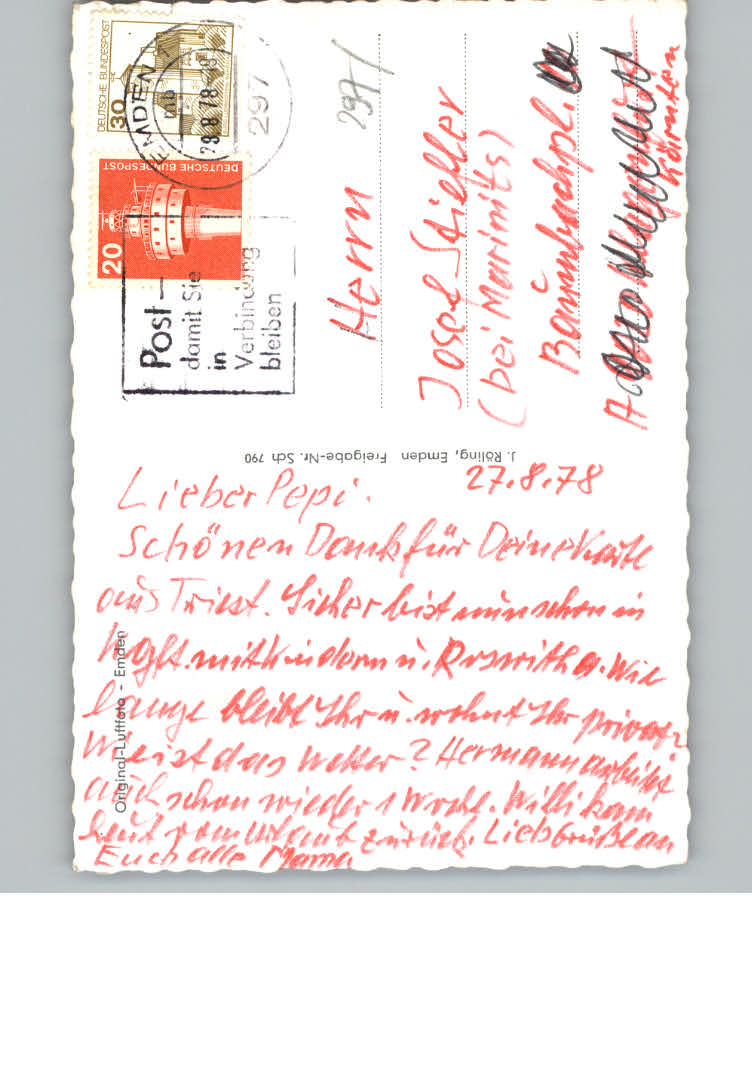 Lieber Pepi.
27.8.78
Schönen Dank für Deine Karte
aus Triest. Sicher bist nun schon in
Kgft. mit Kindern u. Roswitha. Wie
lange bleibt Ihr u. wohnt Ihr privat?
Wie ist das Wetter? Hermann arbeitet
auch schon wieder 1 Woche. Willi kam
heut vom Urlaub zurück. Liebs Grüße an
Euch alle Mama
Original-Luftfoto - Emden
J. Rölling, Emden Freigabe-Nr. Sch 790
DEUTSCHE BUNDESPOST
30
DEUTSCHE BUNDESPOST
20
EMDEN 1
28.8.78
297
Post—
damit Sie
in
Verbindung
bleiben
297/
Herrn
Josef Stieller
(bei Marinits)
A
Kärnten